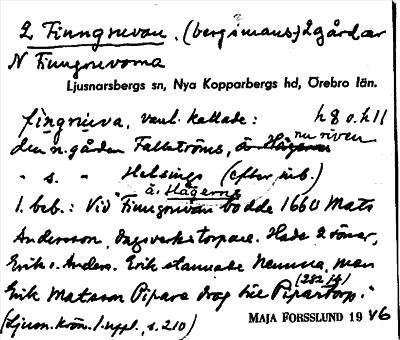 2 Finngruvan, (bergsmans-) 2 gårdar
N Finngruvorna
Ljusnarsbergs sn, Nya Kopparbergs hd, Örebro län.
fingruva, vanl. kallade: h 8 o. h 11
den n. gården Fallströms, nu riven
" s. " Helsings (efter inb.)
ä. Hägerns
1. beb.: "Vid Finngruvan bodde 1660 Mats
Andersson, dagsverkstorpare. Hade 2 söner,
Erik o. Anders. Erik stannade hemma, men
Erik Matsson Pipare drog till Pipartorp." (282 f)
(Ljusn. krön. 1. uppl., s. 210)
MAJA FORSSLUND 1946